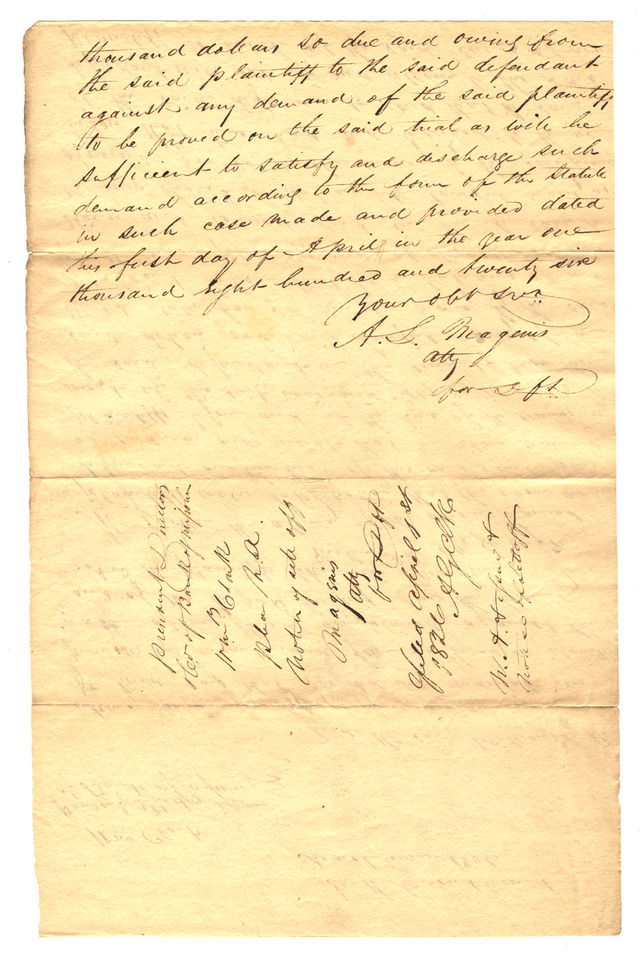 thousand dollars so due and owing from
the said plaintiff to the said defendant
against any demand of the said plaintiff
to be proved on the said trial as will be
sufficient to satisfy and discharge such
demand according to the form of the Statute
in such case made and provided dated
this first day of April in the year one
thousand eight hundred and twenty six
Your obt
A. L. Magenis
atty
for Dft
President Directors
&Co of Bank of Missouri
Wm Clark
Plea
Notice of set off
Magenis
atty
for Dft
filed April 1st
1826
&
Notice of set off